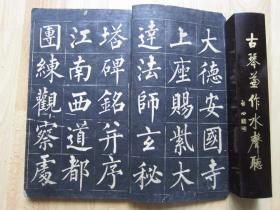 大德安國寺
上座賜紫大
達法師玄秘
塔碑銘并序
江南西道都
團練觀察處
古琴兼作水聲聽